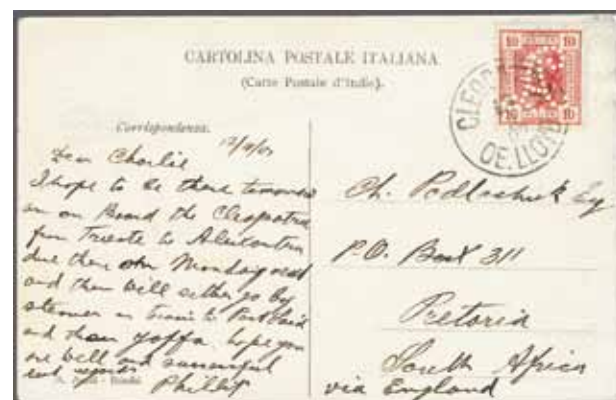 CARTOLINA POSTALE ITALIANA
(Carte Postale d'Italie).
10 10
10 10
CLEOPATRA
OE. LLOYD
Corrispondenza.
Dear Charlie
I hope to be there tomorrow
on Board the Cleopatra
from Trieste to Alexandria
due there on Monday next
and then will either go by
steamer or train to Port Said
and then Yoffa. hope you
are well and successful
Phillip
Ch. Podlashuk Esq
P.O. Box 311
Pretoria
South Africa
via England